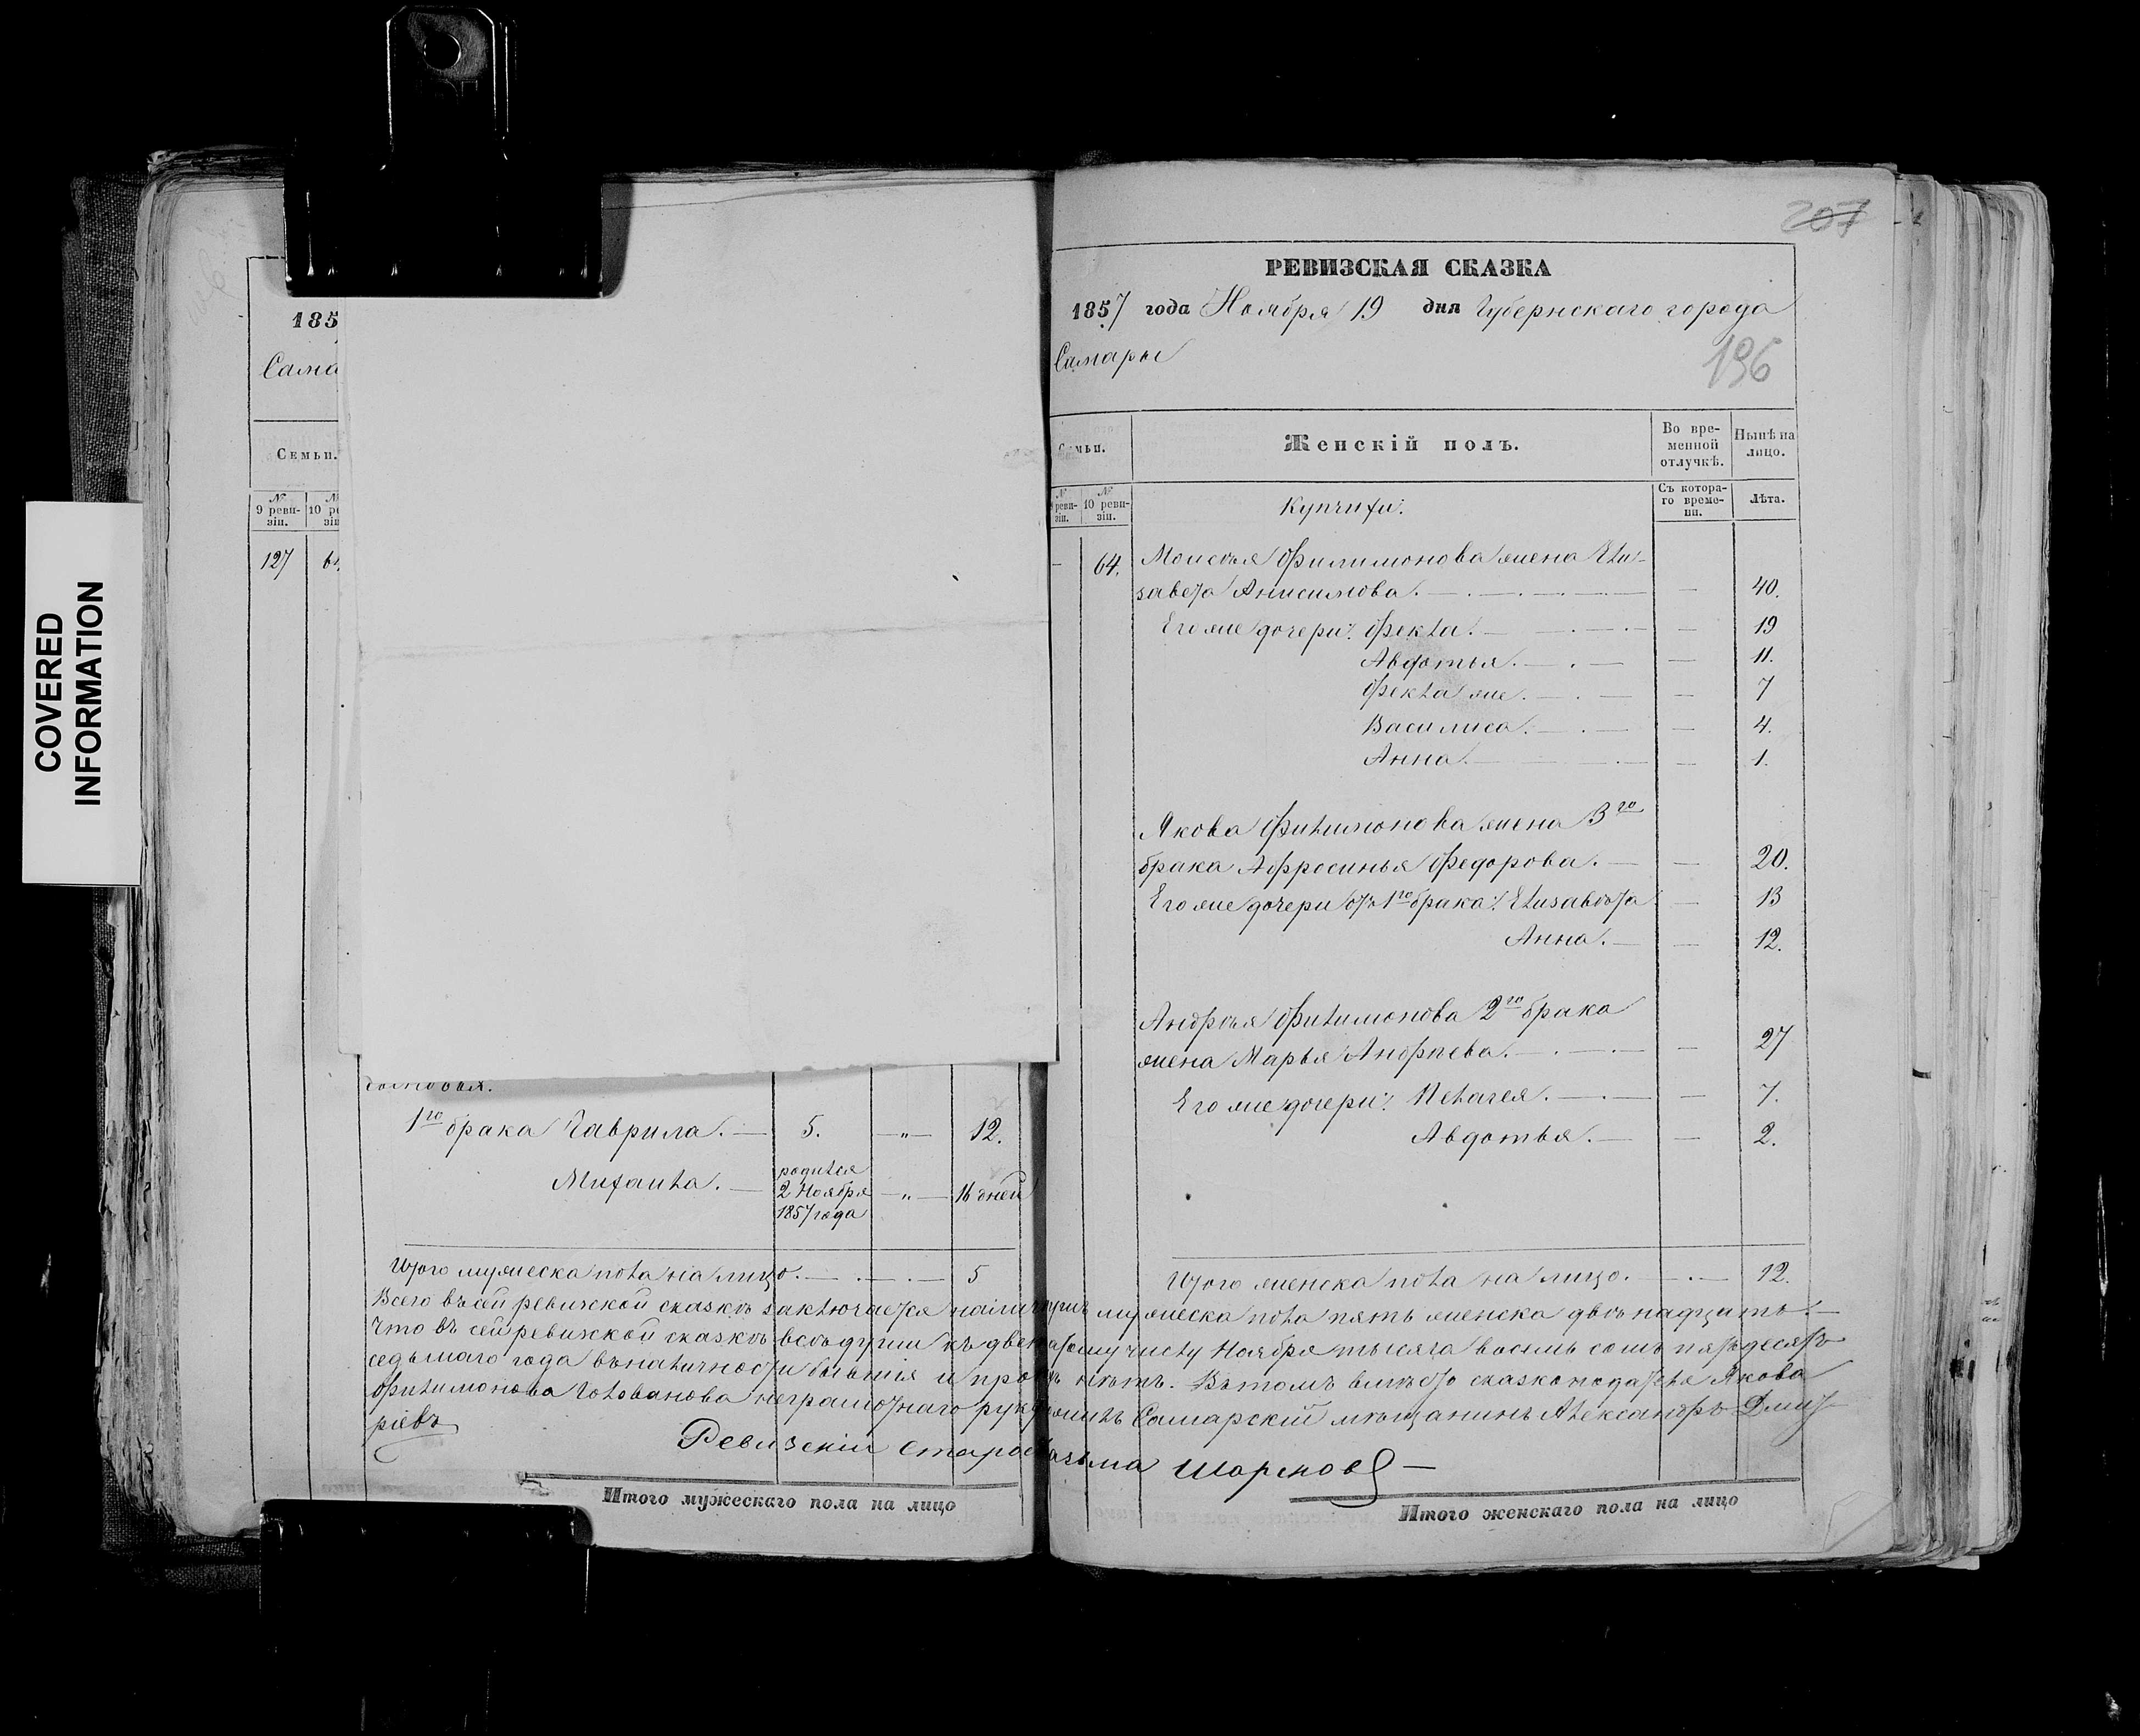 COVERED
INFORMATION
185
Сама
Семьи.
№ 9 реви-зіи.
127
1го брака Гаврила. — 5. —"— 12.
Михаила. — родился 2 Ноября 1857 года —"— 16 дней
Итого мужеска пола на лицо. — 5
207
РЕВИЗСКАЯ СКАЗКА
1857 года Ноября 19 дня Губернскаго города
Самары
196
Женскій полъ.
Во вре-менной отлучкѣ.
Нынѣ на лицо.
№ 10 реви-зіи.
Купчихи:
Съ котора-го време-ни.
Лѣта.
64. Моисѣя Филимонова жена Ели-
завета Анисимова. — — 40.
Его же дочери: Фекла. — — 19
Авдотья. — — 11.
Фекла же. — — 7
Василиса. — — 4.
Анна. — — 1.
Якова Филимонова жена 3го
брака Афросинья Федорова. — — 20.
Его же дочери отъ 1го брака: Елизавѣта — 13
Анна. — — 12.
Андрѣя Филимонова 2го брака
жена Марья Андрѣева. — — 27
Его же дочери: Пелагея. — — 7.
Авдотья. — — 2.
Итого женска пола на лицо. — 12.
Всего въ сей ревизской сказкѣ заключается наличныхъ мужеска пола пять женска двѣнадцать. —
Что въ сей ревизской сказкѣ всѣ души къ числу Ноября тысяча восемь сотъ пятьдесятъ
седьмаго года въ наличности нѣтъ. Въ томъ вмѣсто сказкоподателя Якова
Филимонова Голованова неграмотнаго Самарскій мѣщанинъ Александръ Дмит-
ріевъ
Ревизскій Староста
Итого мужескаго пола на лицо
Итого женскаго пола на лицо